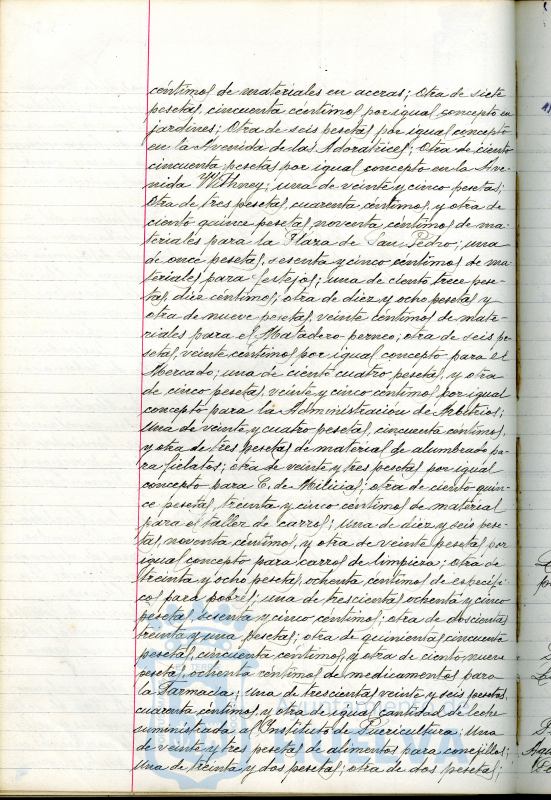 céntimos de materiales en aceras; otra de siete
pesetas, cincuenta céntimos por igual concepto en
jardines; Otra de seis pesetas por igual concepto
en la Avenida de las Adoratrices; Otra de ciento
cincuenta pesetas por igual concepto en la Ave-
nida Withney; una de veinte y cinco pesetas;
Otra de tres pesetas, cuarenta céntimos, y otra de
ciento quince pesetas, noventa céntimos de ma-
teriales para la Plaza de San Pedro; una
de once pesetas, sesenta y cinco céntimos de ma-
teriales para festejos; una de ciento trece pese-
tas, diez céntimos; otra de diez y ocho pesetas y
otra de nueve pesetas, veinte céntimos de mate-
riales para el Matadero perneo; otra de seis pe-
setas, veinte céntimos por igual concepto para el
Mercado; una de ciento cuatro pesetas, y otra
de cinco pesetas, veinte y cinco céntimos por igual
concepto para la Administracion de Arbitrios;
Una de veinte y cuatro pesetas, cincuenta céntimos,
y otra de tres pesetas de material de alumbrado pa-
ra fielatos; otra de veinte y tres pesetas por igual
concepto para C. de Milicias; otra de ciento quin-
ce pesetas, treinta y cinco céntimos de material
para el taller de carros; una de diez y seis pese-
tas, noventa céntimos, y otra de veinte pesetas por
igual concepto para carros de limpieza; otra de
treinta y ocho pesetas, ochenta céntimos de específi-
cos para pobres; una de trescientas ochenta y cinco
pesetas, sesenta y cinco céntimos; otra de doscientas
treinta y una pesetas; otra de quinientas cincuenta
pesetas, cincuenta céntimos, y otra de ciento nueve
pesetas, ochenta céntimos de medicamentos para
la Farmacia; una de trescientas veinte y seis pesetas,
cuarenta céntimos y otra de igual cantidad de leche
suministrada al Instituto de Puericultura; Una
de veinte y tres pesetas de alimentos para conejillos;
Una de treinta y dos pesetas; otra de dos pesetas;